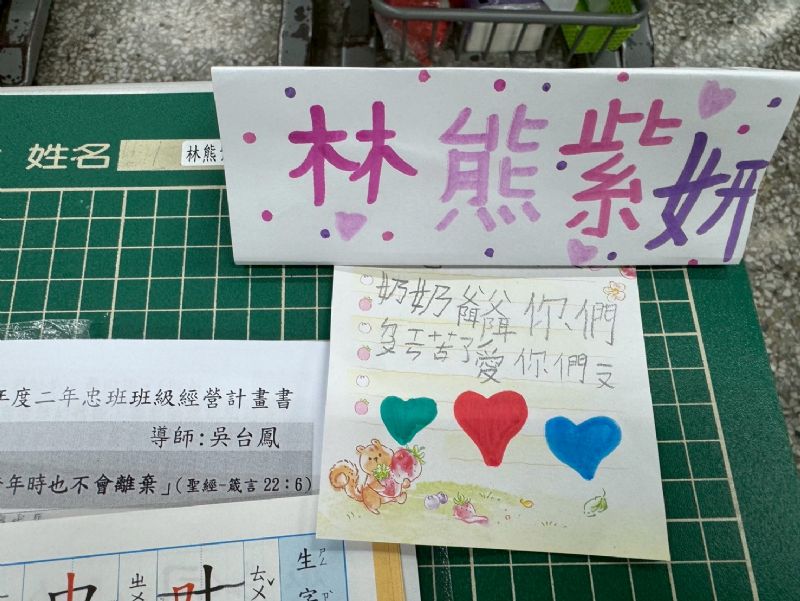 姓名
林熊
林熊紫妍
奶奶爺爺你們
辛苦了愛你們
年度二年忠班班級經營計畫書
導師:吳台鳳
年時也不會離棄」(聖經-箴言 22:6)
生ㄕㄥ
字ㄗˋ
ㄓㄨ
ㄊㄨˇ